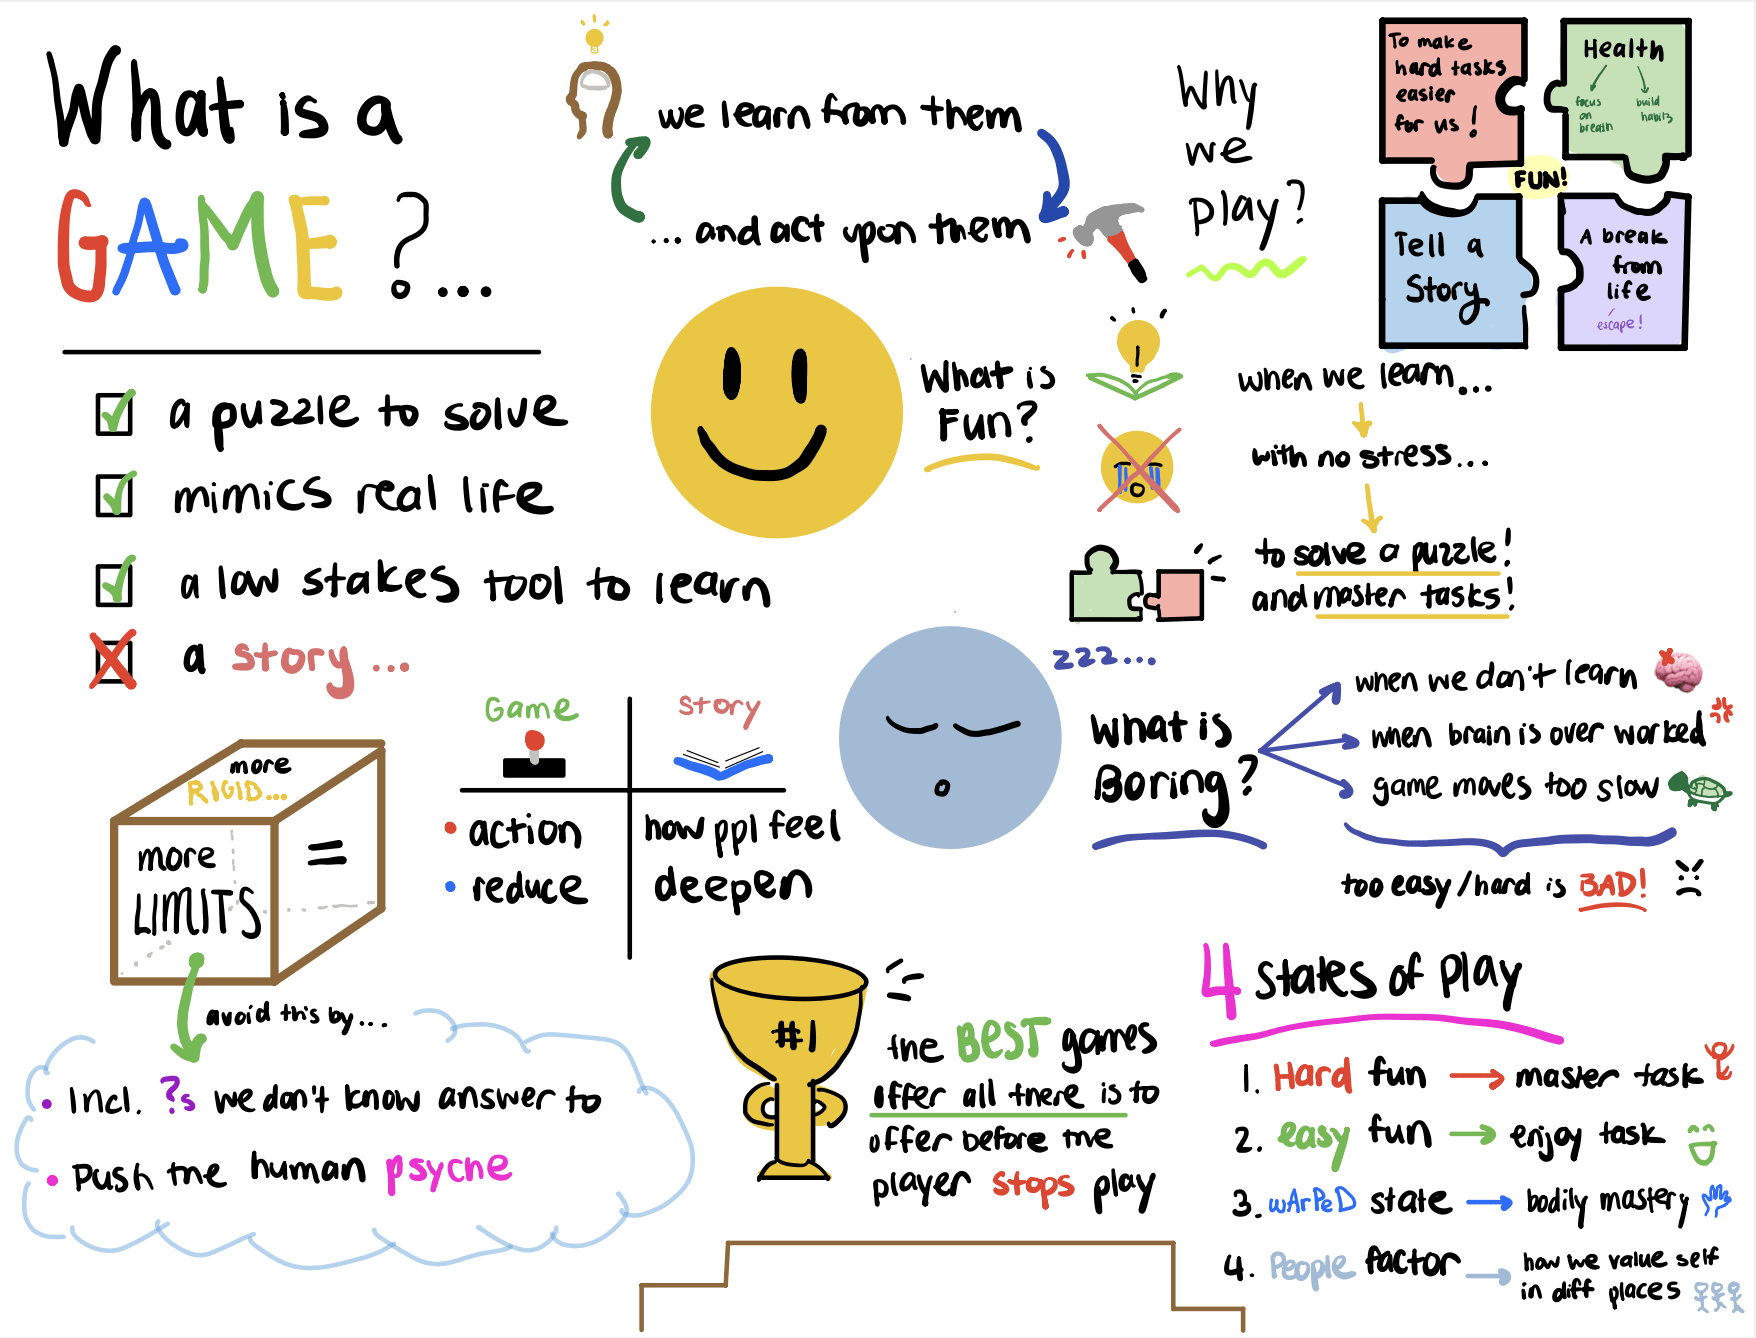 What is a
GAME?...
we learn from them
... and act upon them
Why
we
play?
To make
hard tasks
easier
for us!
Health
focus
on
breath
build
habits
FUN!
Tell a
Story
A break
from
life
escape!
a puzzle to solve
mimics real life
a low stakes tool to learn
a story...
What is
Fun?
when we learn...
with no stress...
to solve a puzzle!
and master tasks!
zzz...
What is
Boring?
when we don't learn
when brain is over worked
game moves too slow
too easy/hard is BAD!
Game
Story
action
how ppl feel
reduce
deepen
more
RIGID...
more
LIMITS
=
avoid this by...
• Incl. ?s we don't know answer to
• Push the human psyche
#1
the BEST games
offer all there is to
offer before the
player stops play
4 states of play
1. Hard fun → master task
2. easy fun → enjoy task
3. wArPeD state → bodily mastery
4. People factor → how we value self
in diff places